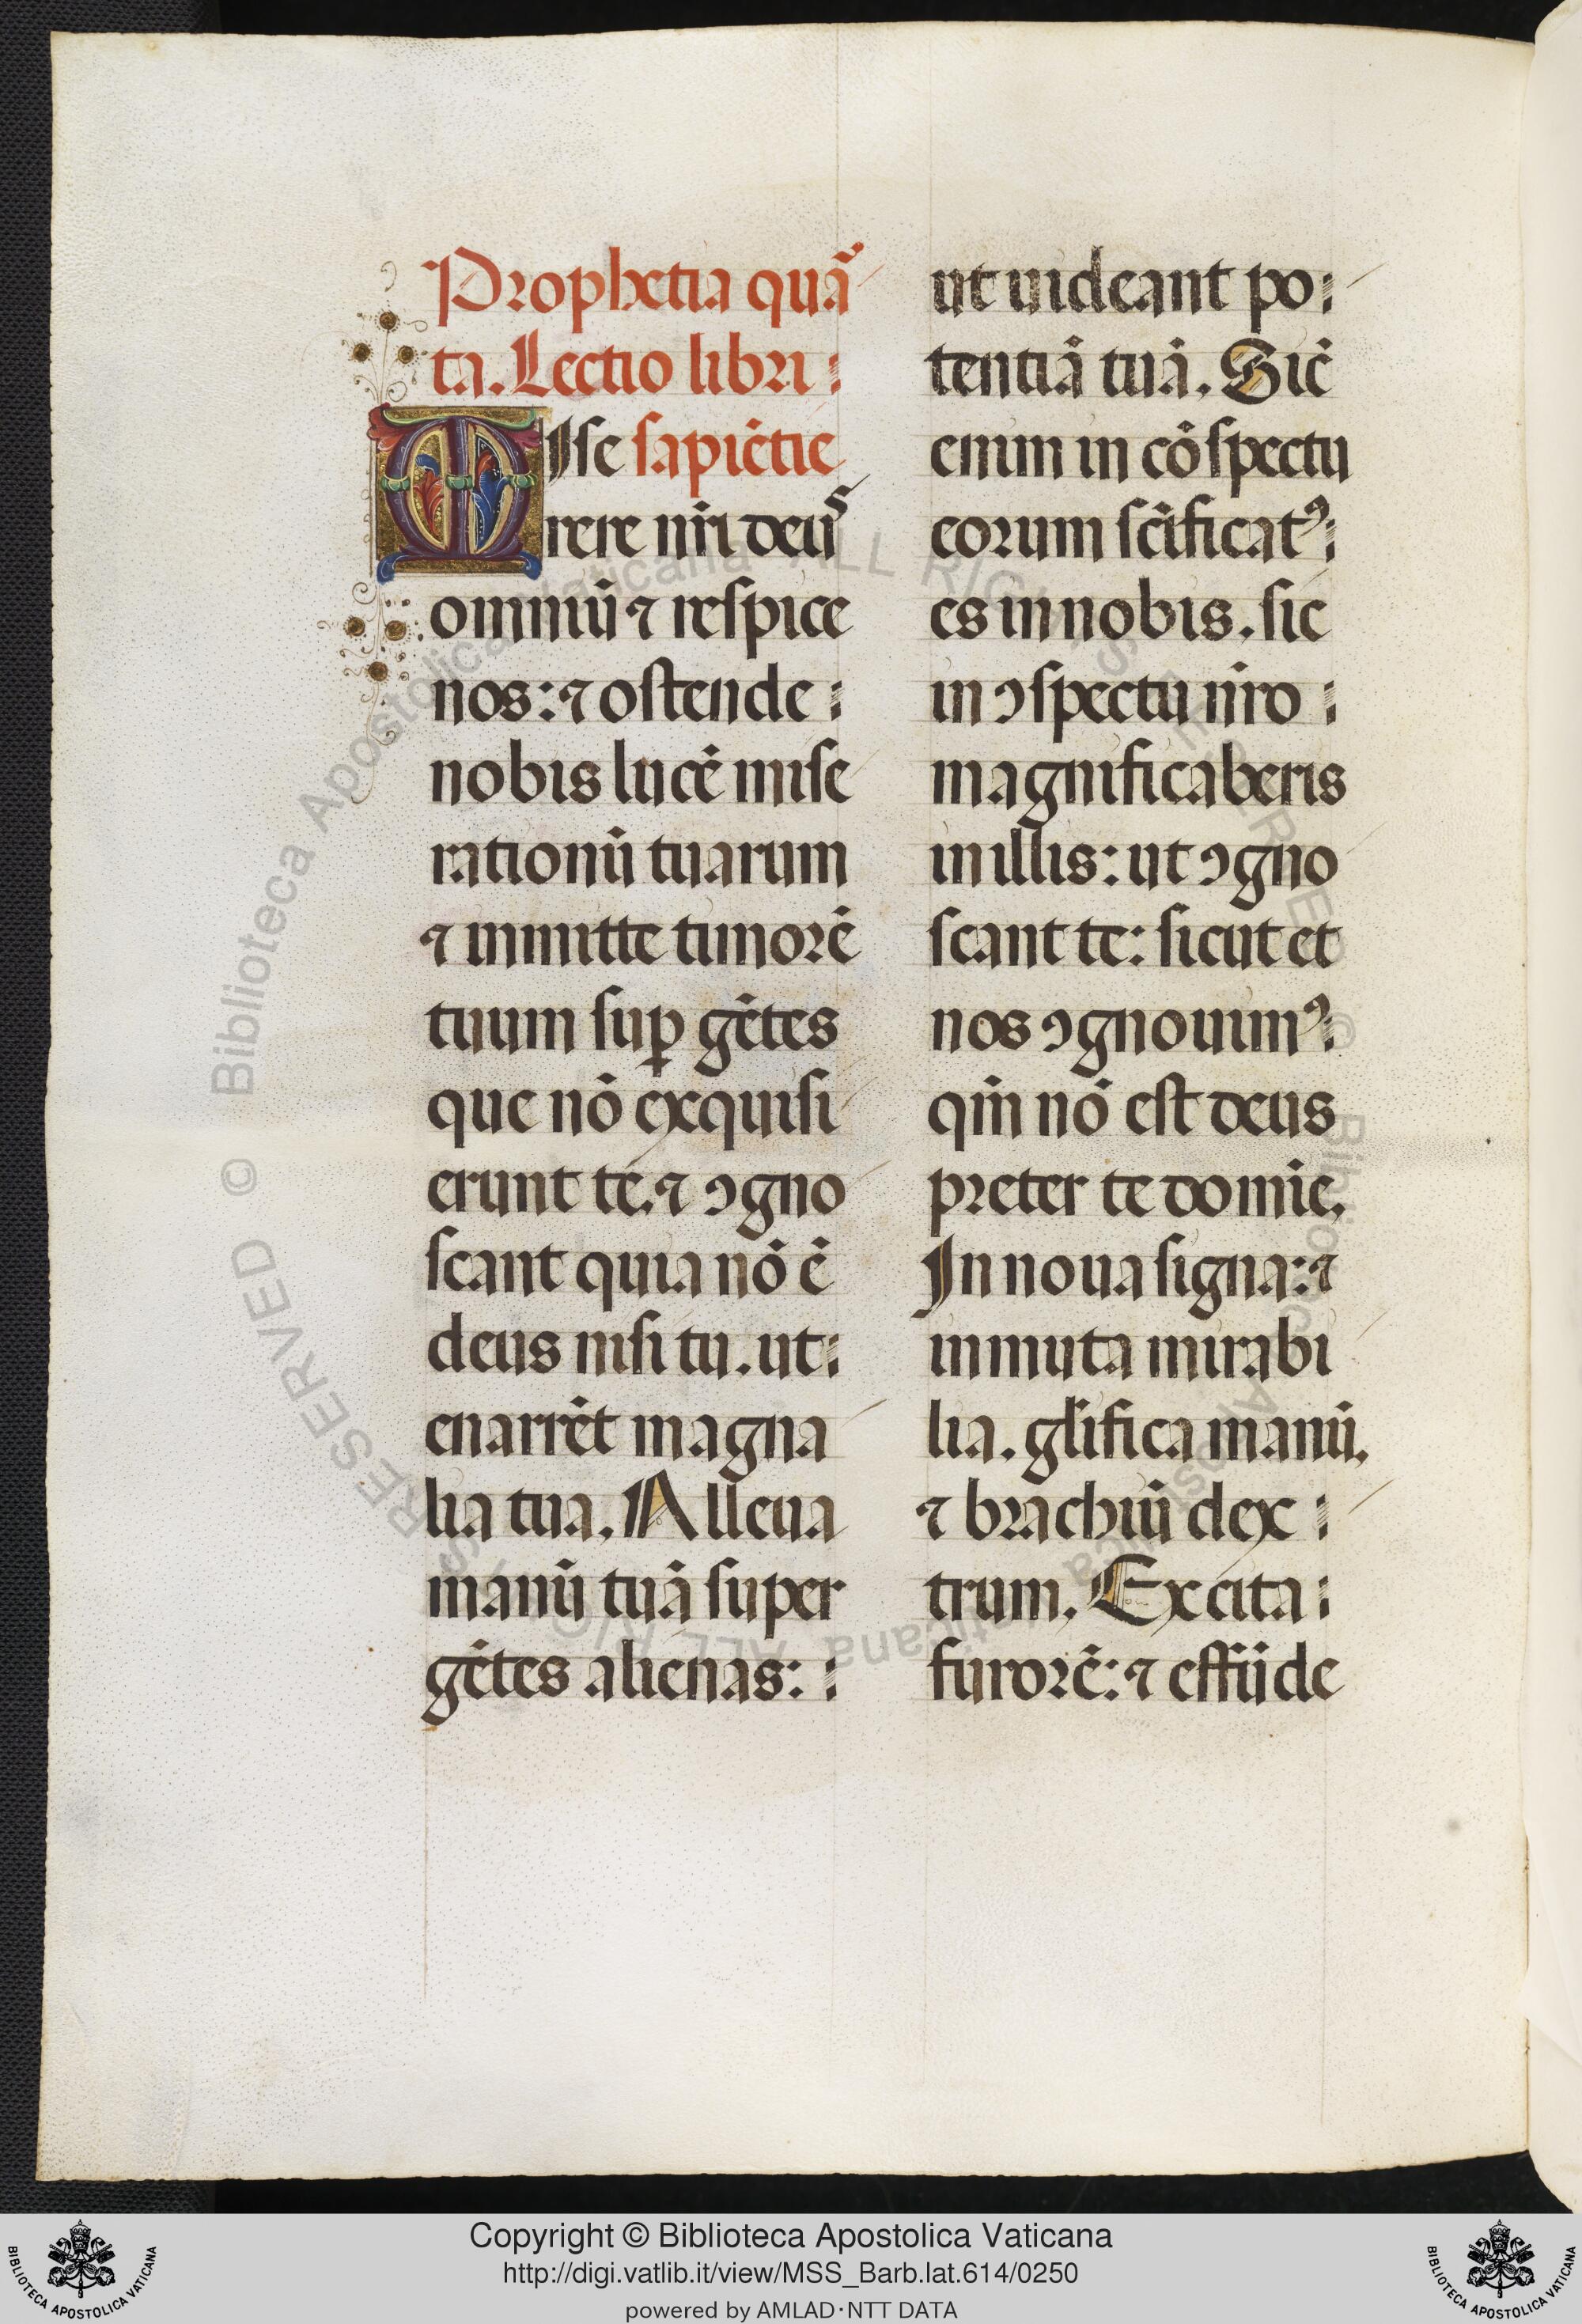 Prophetia quã
ta. Lectio libri
MIse sapiẽtie
rere nr̃i deus
omniũ ⁊ respice
nos: ⁊ ostende
nobis lucẽ mise
rationũ tuarum
⁊ inmitte timorẽ
tuum suꝑ gẽtes
que nõ exquisi
erunt te. ⁊ ꝯgno
scant quia nõ ẽ
deus nisi tu. ut
enarrẽt magna
lia tua. Alleua
manũ tuã super
gẽtes alienas:
ut uideant po
tentiã tuã. Sic̃
enim in cõspectu
eorum sc̃ificatꝰ
es in nobis. sic
in ꝯspectu nr̃o
magnificaberis
in illis: ut ꝯgno
scant te: sicut et
nos ꝯgnouimꝰ
qm̃ nõ est deus
preter te domĩe.
Innoua signa: ⁊
inmuta mirabi
lia. gl̃ifica manũ.
⁊ brachiũ dex
trum. Excita
furorẽ: ⁊ effũde
© Biblioteca Apostolica Vaticana ALL RIGHTS RESERVED
Copyright © Biblioteca Apostolica Vaticana
http://digi.vatlib.it/view/MSS_Barb.lat.614/0250
powered by AMLAD·NTT DATA
BIBLIOTECA APOSTOLICA VATICANA
BIBLIOTECA APOSTOLICA VATICANA